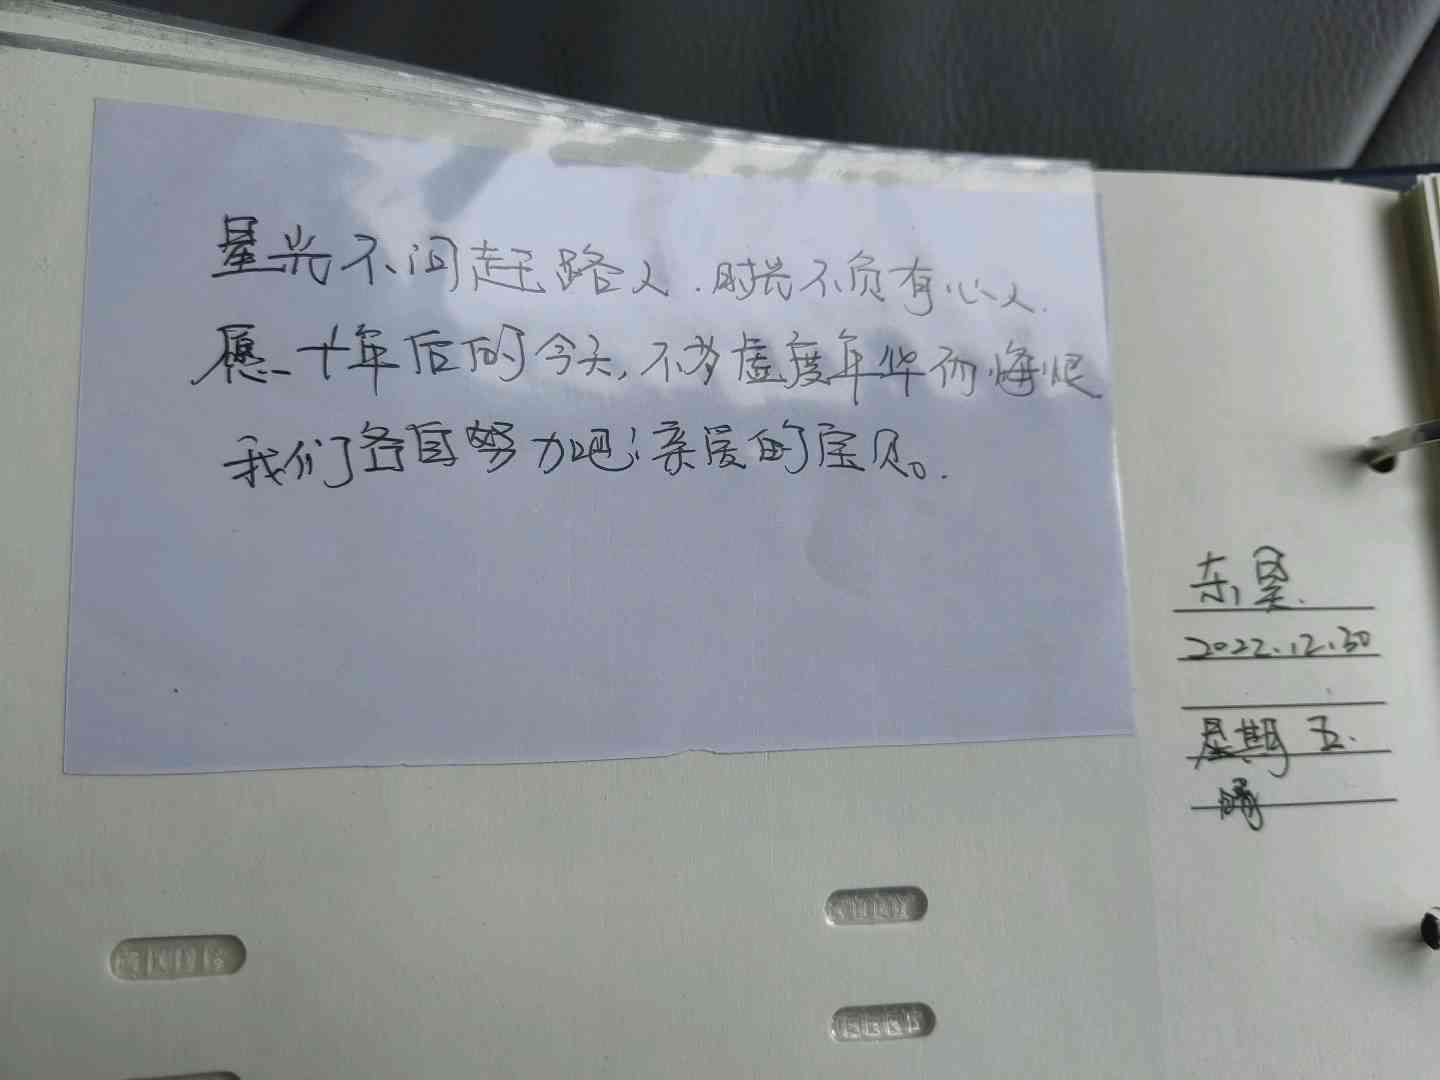 星光不问赶路人.时光不负有心人.
愿十年后的今天,不为虚度年华而悔恨
我们各自努力吧!亲爱的宝贝。.
东昊.
2022.12.30
星期五.
晴